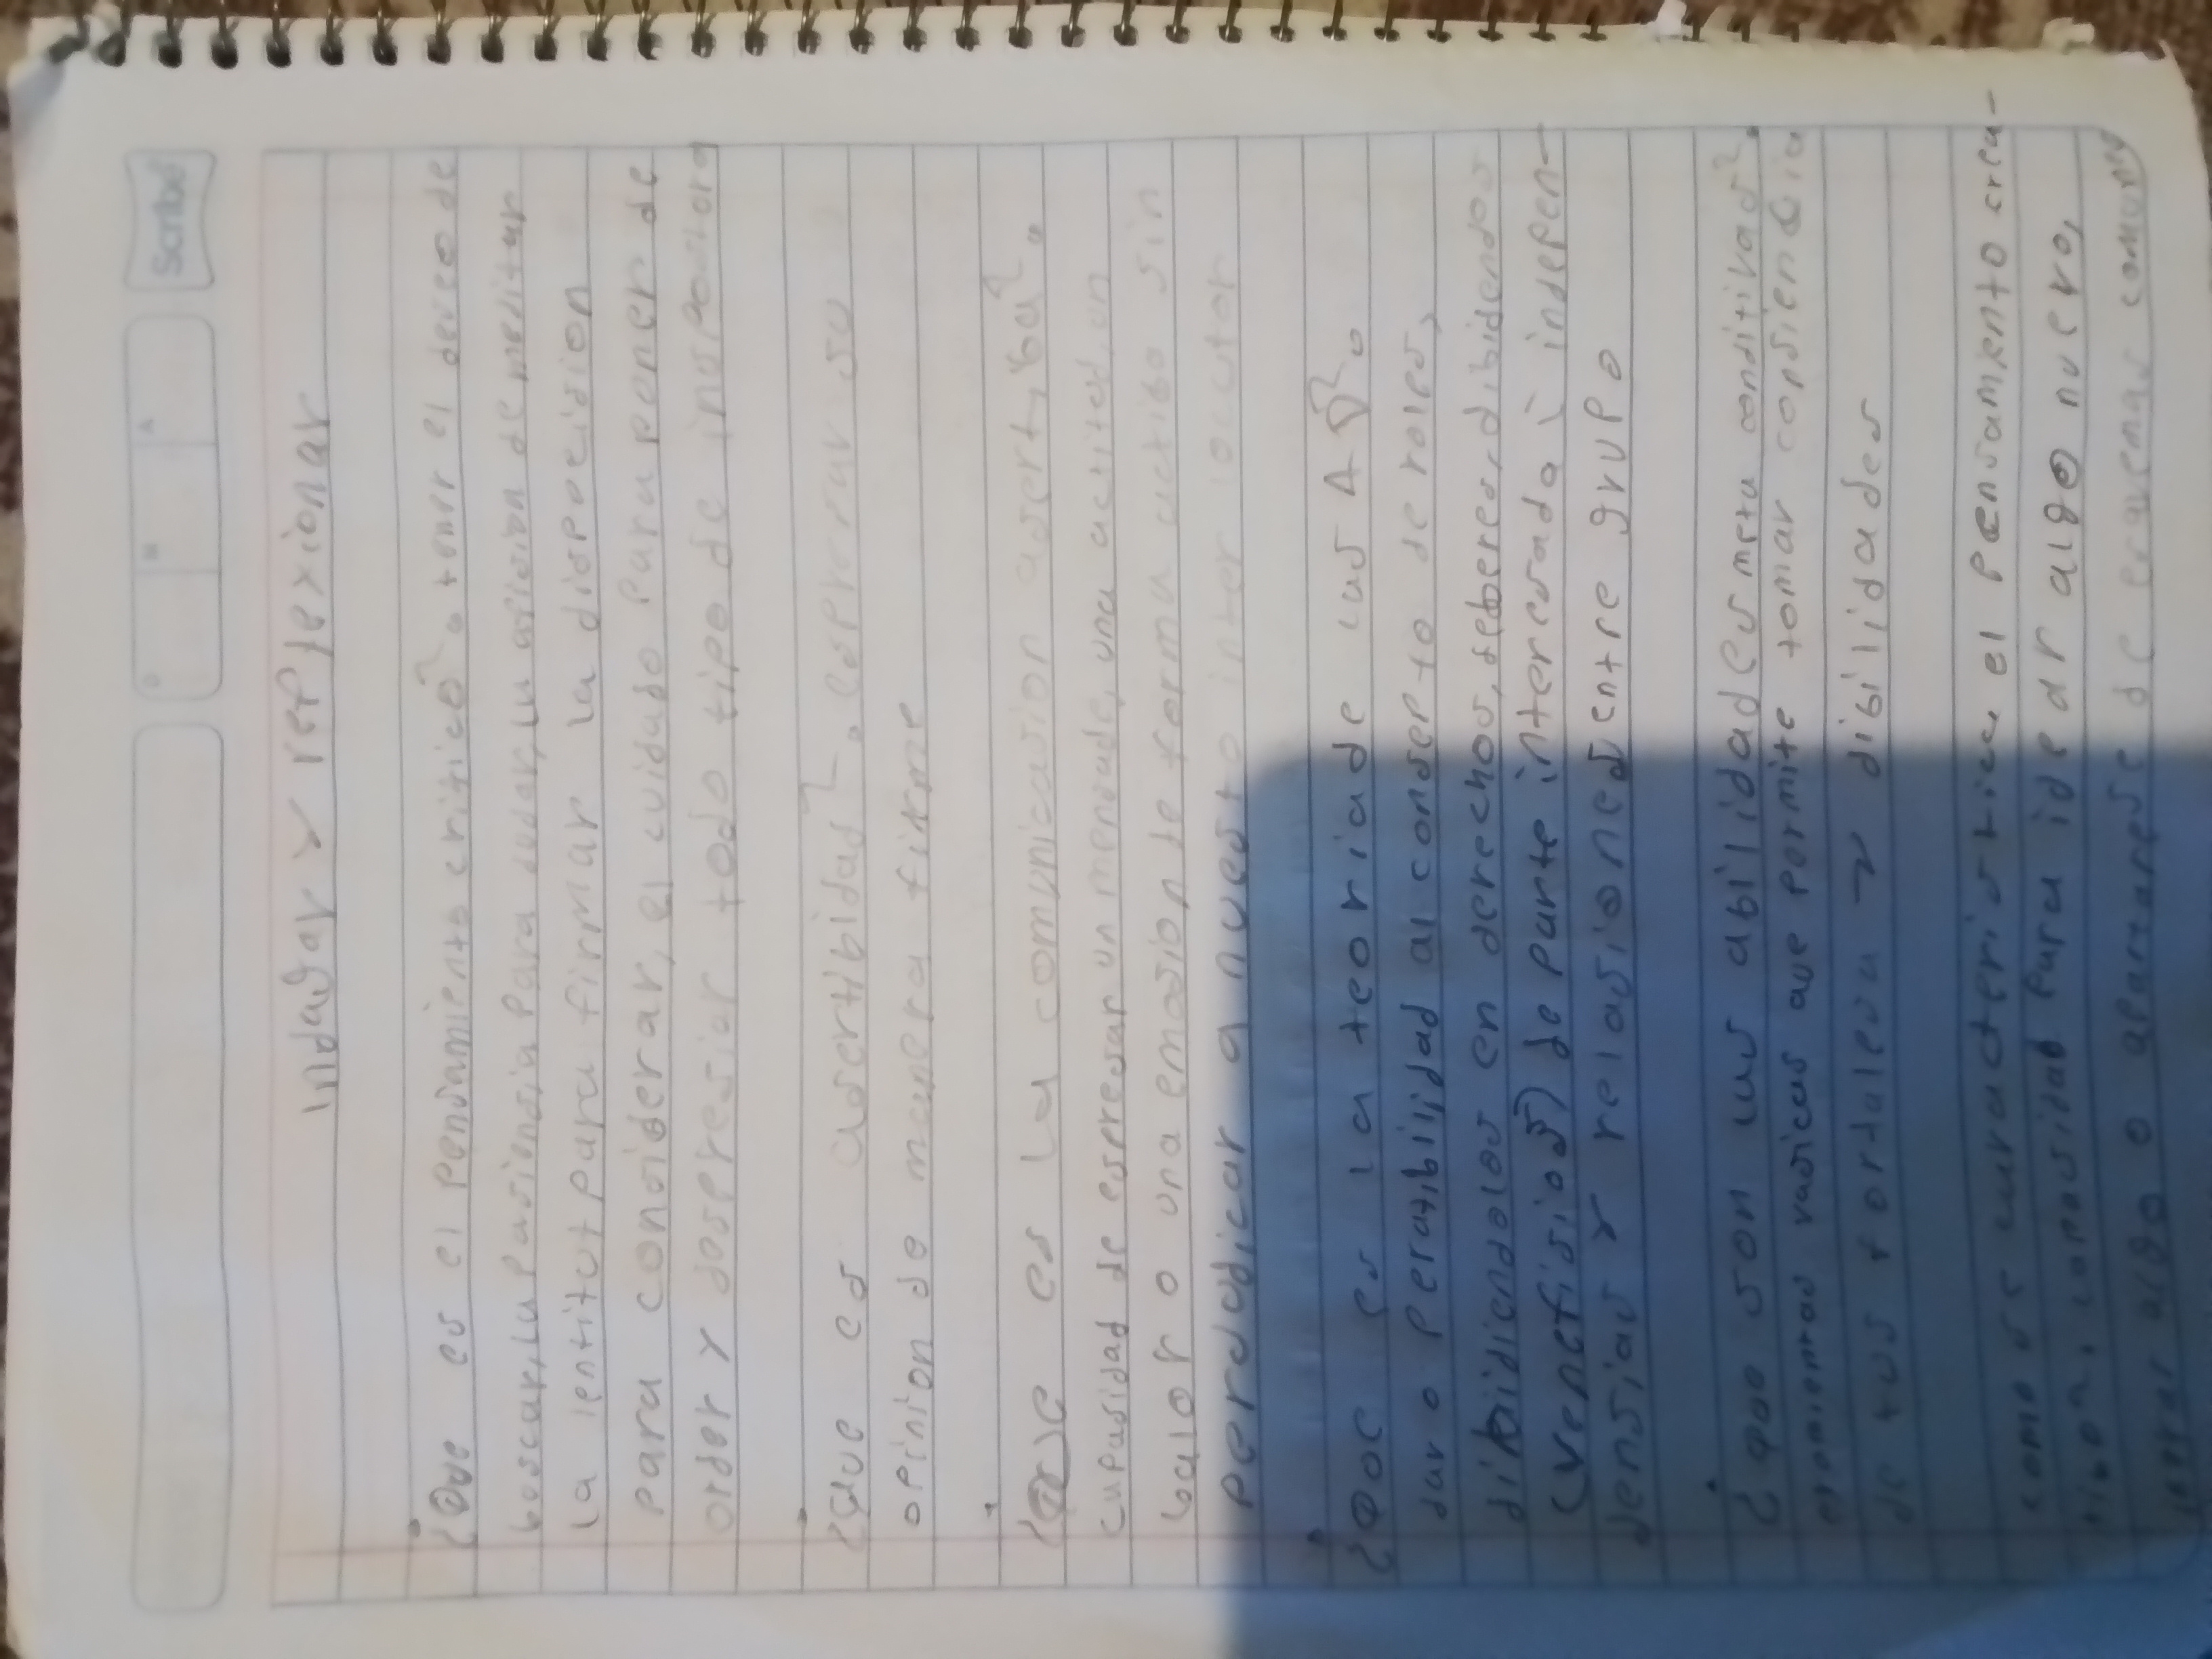 Scribe
D M A
Indagar y reflexionar
¿Que es el pensamiento critico? tener el deceo de
boscar, la pasiensia para dudar, la afision de meditar
la lentitut para firmar la disposision
para considerar, el cuidado para poner de
order y despresiar todo tipo de inspostora
¿Que es asertibidad? espresar su
opinion de manera firme
es la comunicasion asertiba?
capasidad de espresar un mensade, una actitud, un
balor o una emosion de forma actiba sin
perdudicar a nuestro inter locutor
¿Qoe es la teoria de las
dar o peratibilidad al conserto de roles,
dibidiendolos en derechos, deberes, dibidendos
(venefisios) de parte interesada i indepen-
densias y relasiones entre grupo
¿qoe son las abilidades meta conditivas?
eromientas vasicas que permite tomar consiensia
de tus fortalesa y dibilidades
como se caracteristica el pensamiento crea-
tibo, capasidad para idear algo nuevo,
algo o apartarse de esquemas comunes